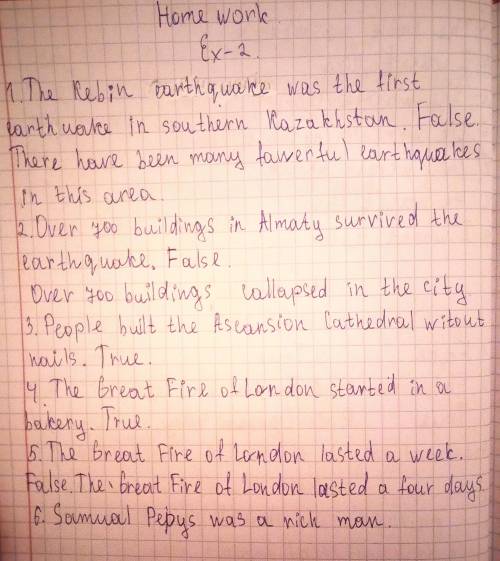 Home work.
Ex-2.
1. The Kebin earthquake was the first
earthwake in southern Kazakhstan. False.
There have been many fawerful earthquakes
in this area.
2. Over 700 buildings in Almaty survived the
earthquake. False.
Over 700 buildings callapsed in the city
3. People built the Ascansion Cathedral witout
nails. True.
4. The Great Fire of London started in a
bakery. True.
5. The Great Fire of London lasted a week.
False. The Great Fire of London lasted a four days
6. Samual Pepys was a rich man.